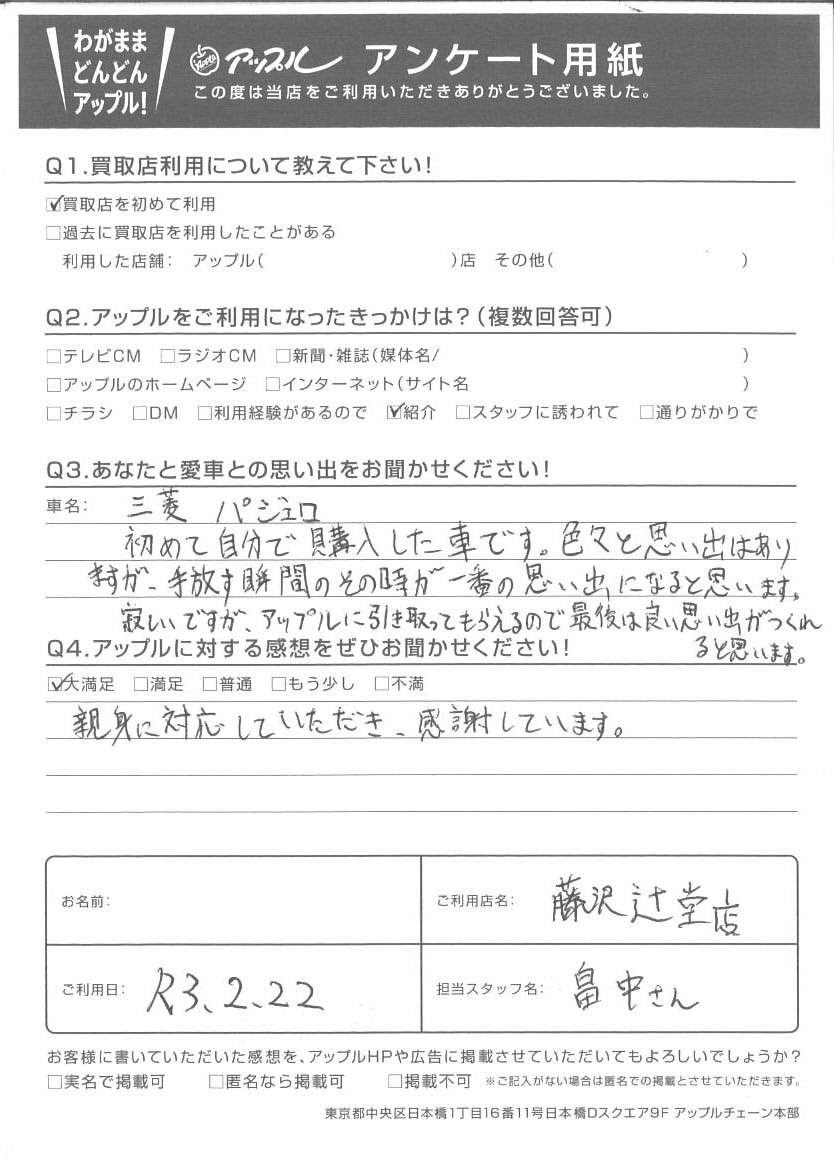 わがまま
どんどん
アップル!
アップル アンケート用紙
この度は当店をご利用いただきありがとうございました。
Q1.買取店利用について教えて下さい!
☑買取店を初めて利用
□過去に買取店を利用したことがある
利用した店舗: アップル( )店 その他( )
Q2.アップルをご利用になったきっかけは?(複数回答可)
□テレビCM □ラジオCM □新聞・雑誌(媒体名/ )
□アップルのホームページ □インターネット(サイト名 )
□チラシ □DM □利用経験があるので ☑紹介 □スタッフに誘われて □通りがかりで
Q3.あなたと愛車との思い出をお聞かせください!
車名: 三菱 パジェロ
初めて自分で購入した車です。色々と思い出はあり
ますが、手放す瞬間のその時が一番の思い出になると思います。
寂しいですが、アップルに引き取ってもらえるので最後は良い思い出がつくれ
ると思います。
Q4.アップルに対する感想をぜひお聞かせください!
☑大満足 □満足 □普通 □もう少し □不満
親身に対応していただき、感謝しています。
お名前:
ご利用店名: 藤沢辻堂店
ご利用日: R3.2.22
担当スタッフ名: 畠中さん
お客様に書いていただいた感想を、アップルHPや広告に掲載させていただいてもよろしいでしょうか?
□実名で掲載可 □匿名なら掲載可 □掲載不可 ※ご記入がない場合は匿名での掲載とさせていただきます。
東京都中央区日本橋1丁目16番11号日本橋Dスクエア9F アップルチェーン本部